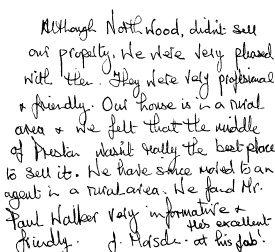 Although Northwood, didn't sell
our property, we were very pleased
with them. They were very professional
& friendly. Our house is in a rural
area & we felt that the middle
of Preston wasn't really the best place
to sell it. We have since moved to an
agent in a rural area. We found Mr.
Paul Walker very informative &
friendly. He's excellent
at his job!
J.